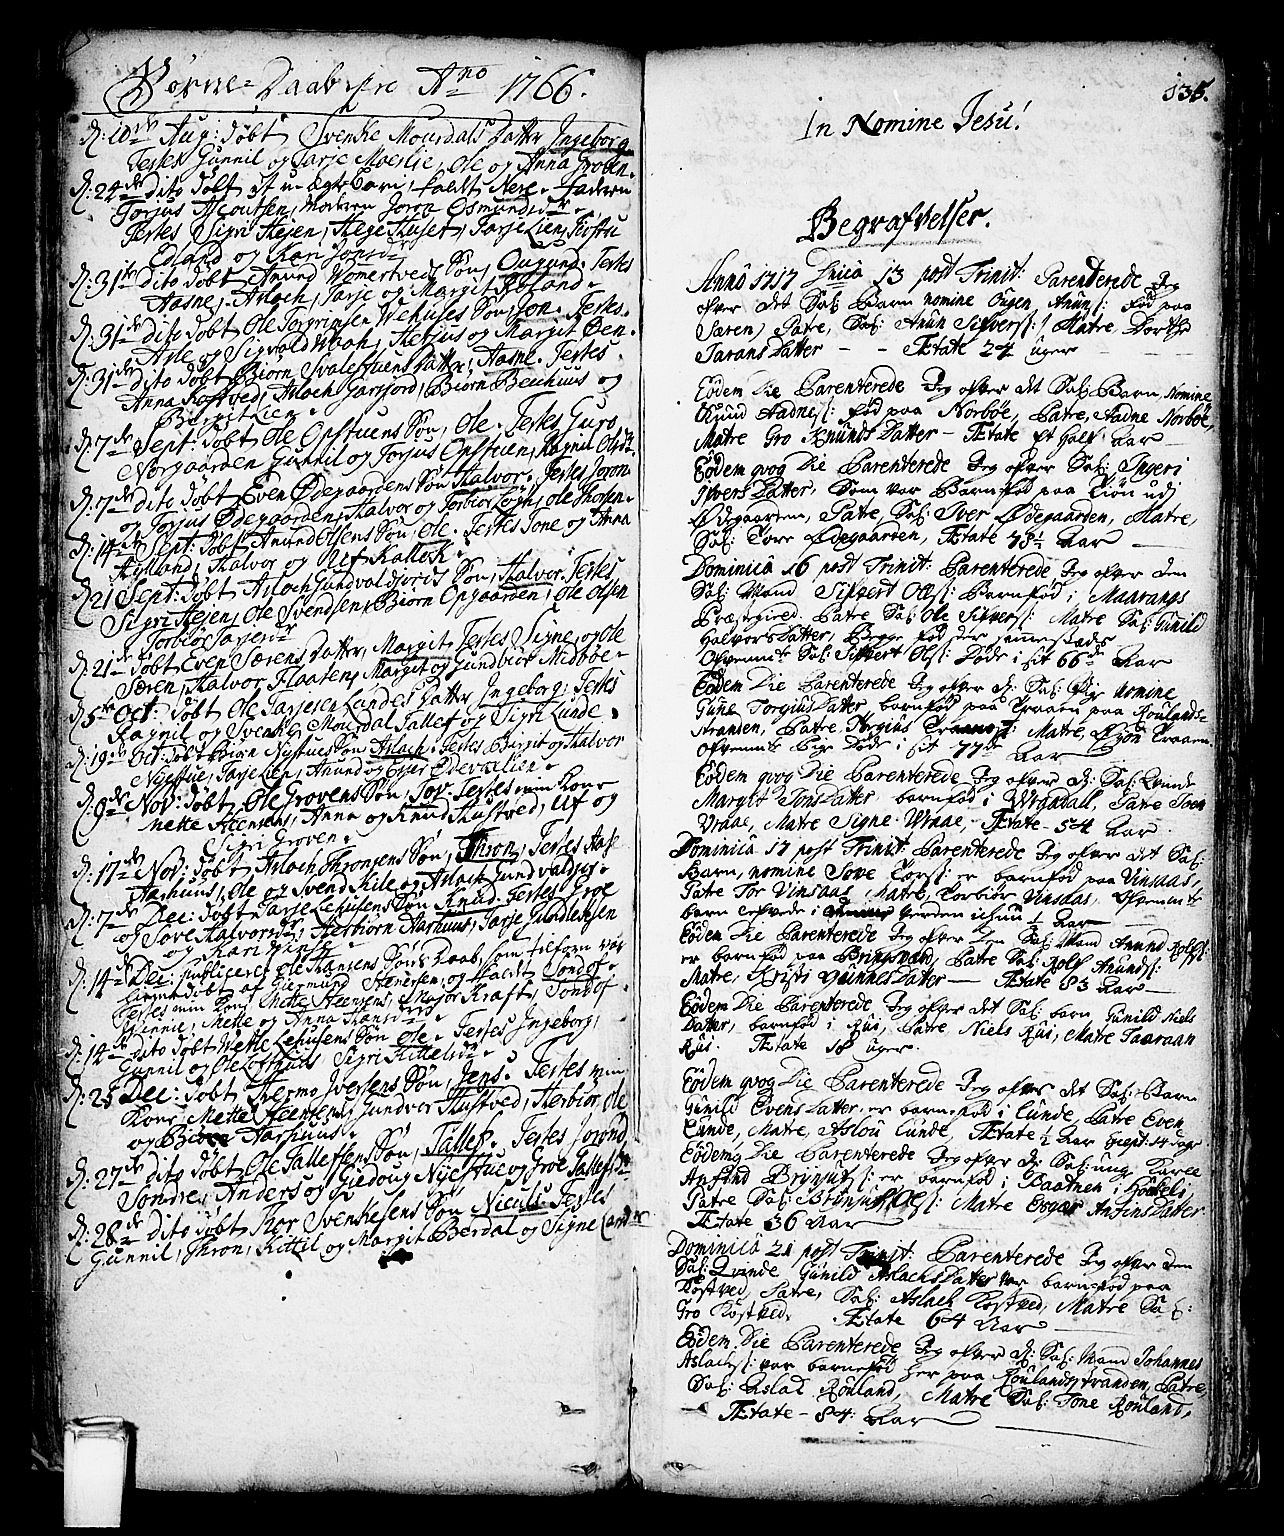 Børne-Daab pro A:no 1766.
D: 10de Aug: døbt Svenke Mourdals Datter Ingeborg
Testes Gunnil og Tarje Moerlie, Ole og Anna Groven.
D: 24de dito døbt et u-ægte Barn, kaldt Nere. Faderen
Torjus Moderen Joron Osmundsdr
Testes Sigri Hejen, Hege Huset, Tarje Lien,
og Kari Jonsdr
D: 31te dito døbt Anund Vomertveds Søn, Ougund. Testes
Aasne, Asloch, Tarje og Margit Røland.
D: 31de dito døbt Ole Torgrimsen Vehuses Søn, Jon. Testes.
Asle og Sigvald Vaah, Herjus og Margit Øen.
D: 31de dito døbt Biørn Svalestuens Datter, Aasne. Testes
Anna Rostved, Asloch Garsjord, Biørn Beuhuus og
Birgit Lien.
D: 7de Sept: døbt Ole Opstuens Søn, Ole. Testes Guro
Norgaarden Gunnil og Torjus Opstuen, Ragnil Olsdr.
D: 7de dito døbt Even Ødegaardens Søn Halvor. Testes Joron
og Torjus Ødegaarden, Halvor og Torbior Logn, Ole Thoren.
D: 14de Sept: døbt Anund Olsens Søn, Ole. Testes Tone og Anna
Hylland, Halvor og Ulf Kallosk.
D 21 Sept: døbt Asloch Gundvaldsjords Søn, Halvor. Testes
Sigri Hejen, Ole Svendsen, Biørn Opgaarden, Ole Olsen
Torbiør Tarjesdr
D: 21de døbt Even Særens Datter, Margit, Testes Signe og Ole
Særen, Halvor Flaaten, Margit og Gundbiør Midbøe.
D 5te Oct: døbt Ole Tarjesen Lundes Datter Ingeborg, Testes
Ragnil og Svenke Mourdal Tallef og Sigri Lunde.
D: 19de Oct: døbt Biørn Nystues Søn Aslach. Testes Birgit og Halvor
Nystue, Tarje Lien, Anund og Ødevalien.
D: 9de Nov: døbt Ole Grovens Søn, Jov. Testes min Kone
Mette Heensens, Anna og Knud Hustved, Ulf og
Sigri Groven.
D: 17de Nov: døbt Asloch Thronsens Søn, Thron, Testes Aase
Aarhuus, Ole og Svend Kile og Aslach Gundvaldsjor.
D: 7de Dec: døbt Tarje Lehusens Søn Knud. Testes Groe
og Søve Halvorsdr, Herbiørn Aarhuus, Tarje Gundlechsen
og Kari Vinje.
D: 14de Dec: publiceret Ole Hansens Søns Daab, som tilforn var
hiemedøbt af Giermund og kaldt Tondof.
Testes min Kone Mette Heensens, Major Kraft, Tondof
Winnie, Mette og Anna Hansdr.
D: 14de dito døbt Vetle Lehusens Søn Ole. Testes Ingeborg,
Gunnil og Ole Lofthuus Sigri Kittelsdr.
D: 25 Dec: døbt, Hermo Ivertsens Søn, Jens. Testes min
Kone Mette Heensens, Gundvor Hustved, Herbiør, Ole
og Biørn Aarhuus.
D: 27de dito døbt Ole Tallefsens Søn, Tallef. Testes Jorond
Søndre, Anders og Giedoug Nystue og Groe Tallefsdr
D: 28de dito døbt Thor Svenkesens Søn Niculs. Testes
Gunnil, Thron, Kittil og Margit Berdal og Signe Lunder
135.
In Nomine Jesu!
Begrafvelser.
Anno 1717 Dnica 13 post Trinit: Parenterede Jeg
ofver det Sal: Barn nomine Øugen Anuns: Fød paa
Særen, Patre, Sal: Anun Sifvers:/ Matre Dorthe
Tarans Datter - - Ætate 24 uger
Eodem Die Parenterede Jeg ofver det Sal: Barn, Nomine
Kjund Aadnes: Fød paa Norbøe, Patre, Aadne Norbøe,
Matre Gro Knunds Datter - Ætate Et half Aar
Eodem qvoq Die Parenterede Jeg ofver Sal: Ingeri
Ifvers Datter, Som var Barnfød paa udj
Ødegaarden, Patre, Sal: Iver Ødegaarden, Matre,
Sal: Torr Ødegaarden, Ætate 78½ Aar
Dominica 16 post Trinit: Parenterede Jeg ofver den
Sal: Mand Siffvert Ols: Barnfød i Maarangs
Præstegield. Patre Sal: Ole Sifvers: Matre Sal: Gunild
Halvors Datter, Begge Fød der sammesteds
Ofvenmte Sal: Sifvert Ols: Døde i sit 66de Aar
Eodem Die Parenterede Jeg ofver d: Sal: Pige Nomine
Gune Torgius Datter barnfød paa Traaen paa Roulands-
Stranden, Patre, Torgius Matre, Øgon Traaen.
Ofvenmte Pige Døde i sit 77de Aar
Eodem qvoq Die Parenterede Jeg ofver d: Sal: Qvinde
Margit Jons Datter, barnfød i Wraadall, Patre Sven
Vraae, Matre Signe Wraae, Ætate 54 Aar.
Dominica 17 post Trinit: Parenterede Jeg ofver det Sal:
Barn, nomine Sove Tors: er barnfød paa Vinsaas,
Patre Tor Vinsaas, Matre, Torbiør Vinsaas, Ofvenmte
barn Lefvede i Verden ichun ½ Aar
Eodem Die Parenterede Jeg ofver den Sal: Mand Anund Rolfs:
er barnfød paa Patre Sal: Rolf Anunds:
Matre, Kristi Gunnes Datter - Ætate 83 Aar
Eodem Die Parenterede Jeg ofver det Sal: barn Gunild Niels
Datter, barnfød i Rui, Patre Niels Rui, Matre Taaraan
Rui. Ætate 18 uger.
Eodem qvoq Die Parenterede Jeg ofver det Sal: Barn
Gunild Evens Datter er barnefød i Lunde, Patre Even
Lunde, Matre, Aslou Lunde, Ætate ½ Aar 14 dage
Eodemq Die Parenterede Jeg ofver d: Sal: ung Karl
Anfind Brynjuls: er barnfød i Baatnen i
Patre Sal: Brynjul Ols: Matre Anfins Datter
Ætate 36 Aar
Dominica 21 post Trinit: Parenterede Jeg ofver den
Sal: Qvinde Gunild Aslachs Datter var barnfød paa
Rostved, Patre, Sal: Aslach Rostved, Matre Sal:
Gro Rostved. Ætate 64 Aar
Eodem Die Parenterede Jeg ofver d: Sal: Mand Johannes
Aslachs: var barnefød her paa Roulandsstranden, Patre,
Sal: Aslad Rouland, Matre Sal: Tone Rouland,
Ætate - 84: Aar